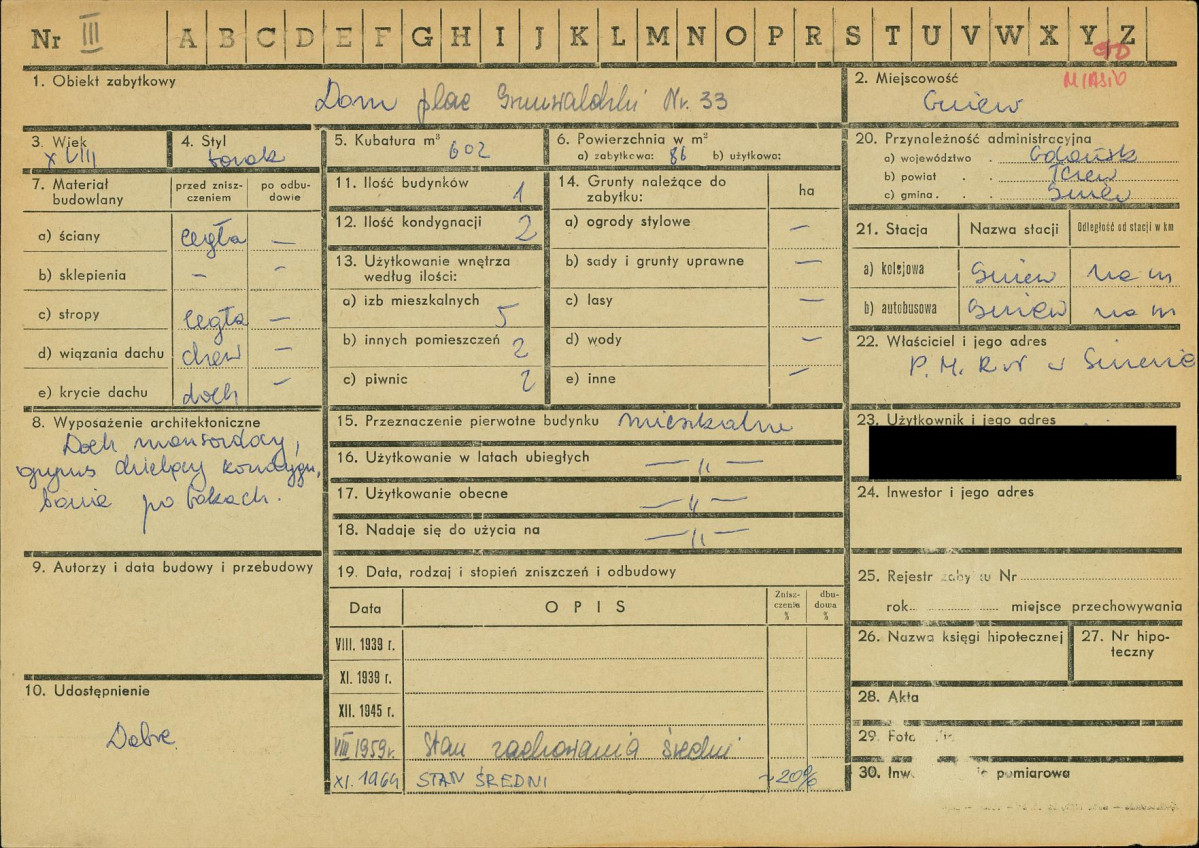 Nr III A B C D E F G H I J K L M N O P R S T U V W X Y Z
MIASTO
1. Obiekt zabytkowy
Dom plac Grunwaldzki Nr. 33
2. Miejscowość
Gniew
3. Wiek
XVIII
4. Styl
barok
5. Kubatura m³ 602
6. Powierzchnia w m²
a) zabytkowa: 86 b) użytkowa:
7. Materiał budowlany
przed zniszczeniem
po odbudowie
a) ściany cegła —
b) sklepienia — —
c) stropy cegła —
d) wiązania dachu drew —
e) krycie dachu dach —
8. Wyposażenie architektoniczne
Dach mansardowy,
gzyms dzielący kondygn,
banie po bokach.
9. Autorzy i data budowy i przebudowy
10. Udostępnienie
Dobre
11. Ilość budynków 1
12. Ilość kondygnacji 2
13. Użytkowanie wnętrza
według ilości:
a) izb mieszkalnych 5
b) innych pomieszczeń 2
c) piwnic 2
14. Grunty należące do
zabytku:
ha
a) ogrody stylowe —
b) sady i grunty uprawne —
c) lasy —
d) wody —
e) inne —
15. Przeznaczenie pierwotne budynku mieszkalne
16. Użytkowanie w latach ubiegłych —„—
17. Użytkowanie obecne —„—
18. Nadaje się do użycia na —„—
19. Data, rodzaj i stopień zniszczeń i odbudowy
Data
OPIS
Zniszczenia %
dbudowa %
VIII. 1939 r.
XI. 1939 r.
XII. 1945 r.
VIII 1959 r. Stan zachowania średni
XI. 1969 STAN ŚREDNI ~20%
20. Przynależność administracyjna
a) województwo . Gdańsk
b) powiat . . Tczew
c) gmina . . . Gniew
21. Stacja
Nazwa stacji
Odległość od stacji w km
a) kolejowa Gniew na m
b) autobusowa Gniew na m
22. Właściciel i jego adres
P. M. R N w Gniewie
23. Użytkownik i jego adres
24. Inwestor i jego adres
25. Rejestr zaby u Nr
rok miejsce przechowywania
26. Nazwa księgi hipotecznej
27. Nr hipoteczny
28. Akta
29. Fot
30. Inw pomiarowa